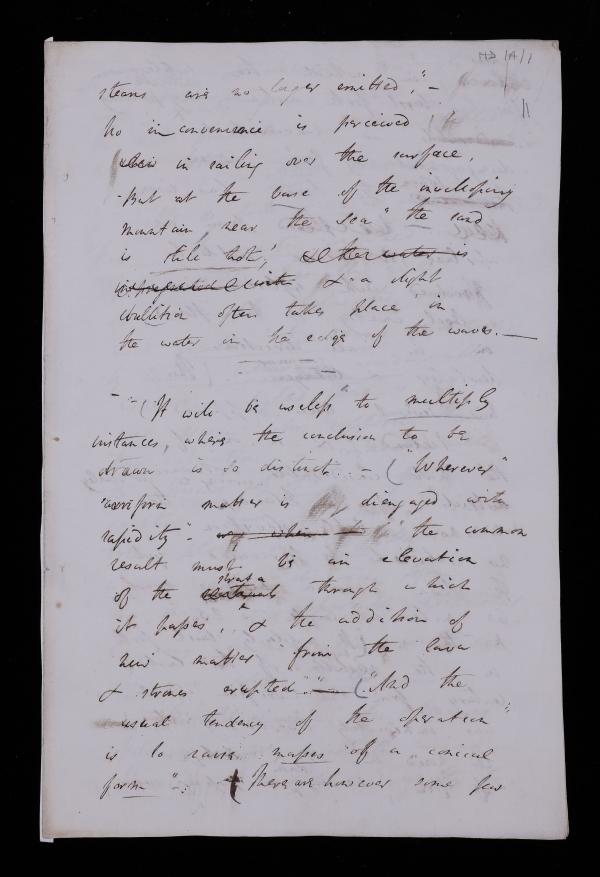 HD/A/1
11
steams are no longer emitted," -
No inconvenience is perceived
in sailing over the surface.
But at the base of the inveloping
mountain, near the sea" the sand
is still hot; & the water is
impregnated with & a slight
ebullition often takes place in
the water in the edge of the waves. —
(It will be useless" to multiply
instances, where the conclusion to be
drawn is so distinct. - ("Wherever"
"aeriform matter is disengaged with
rapidity" - when the common
result must be an elevation
strata
of the materials through which
it passes, & the addition of
new matter from the lava
& stones erupted." — ("And the
usual tendency of the operation"
is to raise masses of a conical
form". (There are however some few